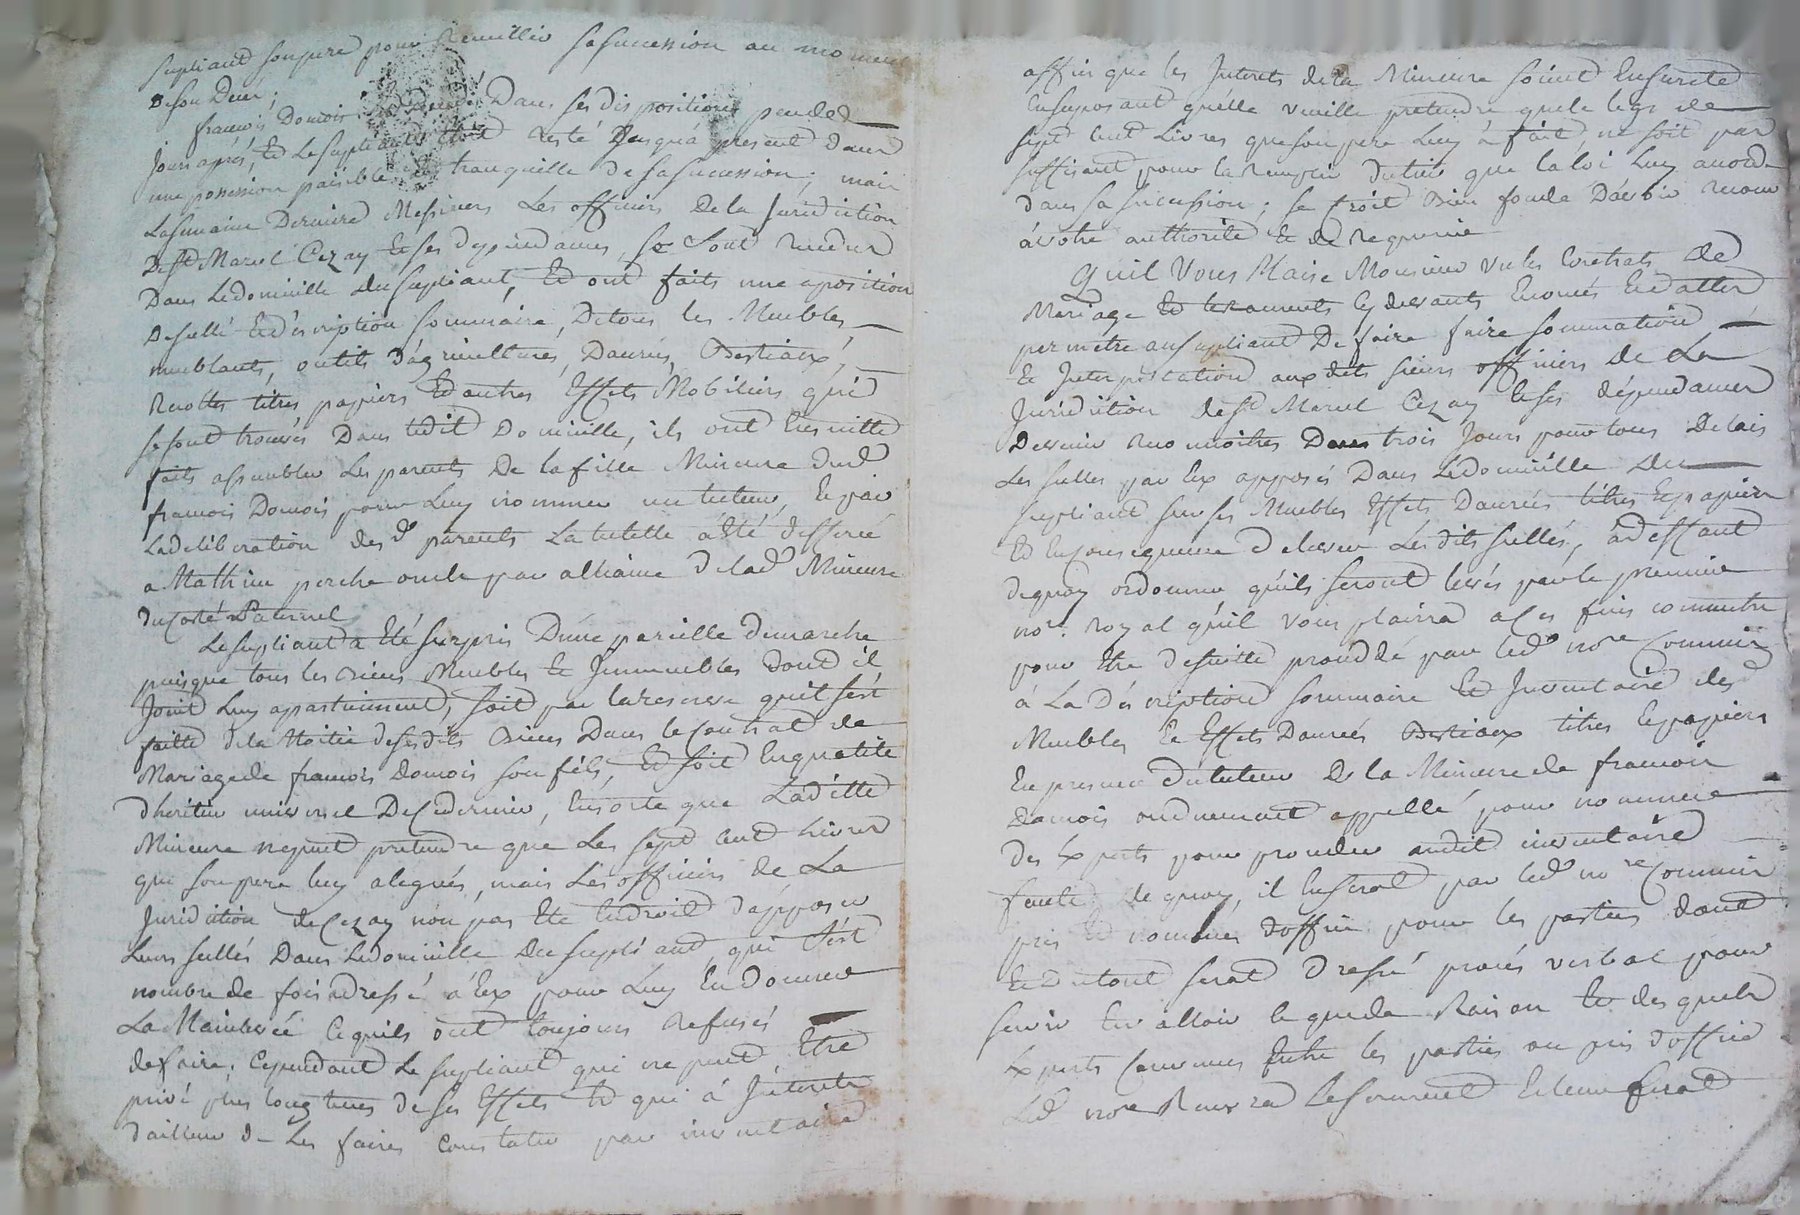 supliant son pere pour Recueillir sa succession au moment
De son Deces;
francois Domois Dans ses dispositions peu de
Jours aprés, Et Le supliant étoit resté Jusqu'a present dans
une possession paisible et tranquille de sa succession; mais
La semaine Derniere Messieurs Les officiers De la Juridiction
De St Marcel Cezay Et ses dependances, se sont rendus
Dans Le domicille du supliant, Et ont faits une aposition
De sellé Et description sommaire, De tous les Meubles
meublants, outils d'agriculture, Danrées, Bestiaux,
Recoltes titres papiers Et autres Effets Mobiliers qui
se sont trouvés Dans ledit Domicille, ils ont Ensuitte
faits assembler Les parents De la fille Mineure dud
francois Domois pour Luy nommer un tuteur, Et par
La deliberation des d parents La tutelle a été defferée
a Mathieu perche oncle par alliance De lad Mineure
Du Costé Paternel
Le supliant a Eté surpris D'une pareille demarche
puisque tous les Biens Meubles Et Immeubles dont il
Jouit Luy apartiennent, soit par la reserve qu'il s'est
faitte de la Moitié de ses dits Biens Dans le contrat de
Mariage de francois Domois son fils, Et soit En qualité
d'heritier universel De ce dernier, Ensorte que Laditte
Mineure ne peut pretendre que Les sept cent Livres
que son pere luy a legués, mais Les officiers de La
Juridiction de Cezay n'on pas Eté En droit d'apposer
Leurs sellés Dans Le domicille du supliant, qui s'est
nombre de fois adressé à Eux pour Luy En donner
La Mainlevée ce qu'ils ont toujours Refusés
de faire; Cependant Le supliant qui ne peut Etre
privé plus long tems de ses Effets Et qui à Interets
d'ailleurs de Les faires Constater par inventaire
affin que les Interets de la Mineure soient En sureté
En suposant qu'elle veuille pretendre que le legs de
sept cent Livres que son pere Luy à fait, ne soit pas
suffisant pour la Remplir du tiers que la loi Luy accorde
dans sa succession; se croit Bien fondé D'avoir recour
à votre authorité Et de Requerir
Qu'il Vous Plaise Monsieur vu les Contrats De
Mariage Et testaments cy devants Enoncés Et dattés
permetre au supliant De faire faire sommation
Et Interpellation aux dits sieurs officiers de La
Juridiction de St Marcel Cezay Et ses dépendances
De venir reconnoitre Dans trois Jours pour tous Delais
Les sellés par Eux apposés Dans Le domicille du
supliant sur ses Meubles Effets Danrées titres Et papiers
Et En Consequence de lever Les dits sellés, à deffaut
de quoy ordonner qu'ils seront levés par le premier
nore. Royal qu'il vous plaira a ces fins commettre
pour Etre De suitte procédé par led nore Commis
à La Description sommaire Et Inventaire des
Meubles Et Effets Danrées Bestiaux titres Et papiers
En presence du tuteur De la Mineure de francois
Domois ou duement appellé pour nommer
des Experts pour proceder audit inventaire
faute de quoy, il En sera par led nore Commis
pris Et nommés d'office pour les parties dont
Et du tout sera Dressé procés verbal pour
servir Et valloir ce que de Raison Et des quels
Experts Convenus Entre les parties ou pris d'office
Led nore Recevra Le serment Et leur sera